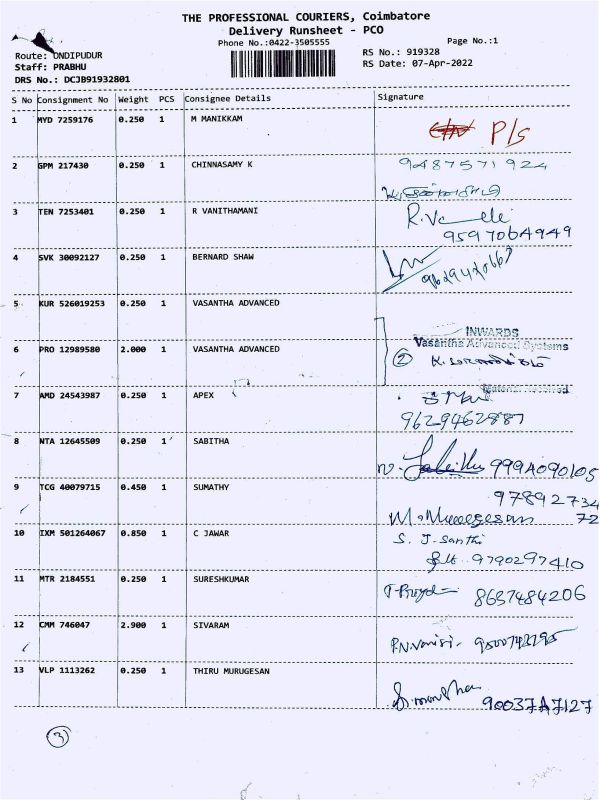 THE PROFESSIONAL COURIERS, Coimbatore
Delivery Runsheet - PCO
Phone No.:0422-3505555
Page No.:1
Route: ONDIPUDUR
Staff: PRABHU
DRS No.: DCJB91932801
RS No.: 919328
RS Date: 07-Apr-2022
S No Consignment No Weight PCS Consignee Details Signature
1 MYD 7259176 0.250 1 M MANIKKAM
P/s
2 GPM 217430 0.250 1 CHINNASAMY K
9487571924
3 TEN 7253401 0.250 1 R VANITHAMANI
9597064949
4 SVK 30092127 0.250 1 BERNARD SHAW
5 KUR 526019253 0.250 1 VASANTHA ADVANCED
INWARDS
Vasantha Advanced Systems
6 PRO 12989580 2.000 1 VASANTHA ADVANCED
2
Material Received
7 AMD 24543987 0.250 1 APEX
9629462887
8 NTA 12645509 0.250 1 SABITHA
9994090105
9 TCG 40079715 0.450 1 SUMATHY
97892734
72
M. Murugesan
10 IXM 501264067 0.850 1 C JAWAR
S. J. Santhi
9790297410
11 MTR 2184551 0.250 1 SURESHKUMAR
8637484206
12 CMM 746047 2.900 1 SIVARAM
13 VLP 1113262 0.250 1 THIRU MURUGESAN
3